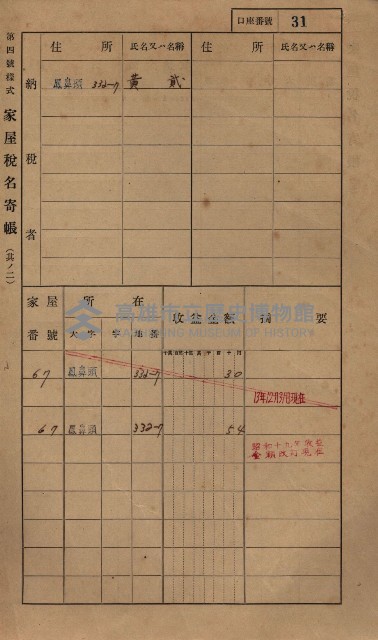 口座番號 31
第四號樣式 家屋稅名寄帳（其ノ二）
納稅者
住所 氏名又ハ名稱 住所 氏名又ハ名稱
鳳鼻頭 332-7 黃貳
家屋番號 所在 收金金額 摘要
大字 字 地番
高雄市立歷史博物館
KAOHSIUNG MUSEUM OF HISTORY
67 鳳鼻頭 332-7 30
17年12月31日現在
67 鳳鼻頭 332-7 54
昭和十九年
金額改訂現在